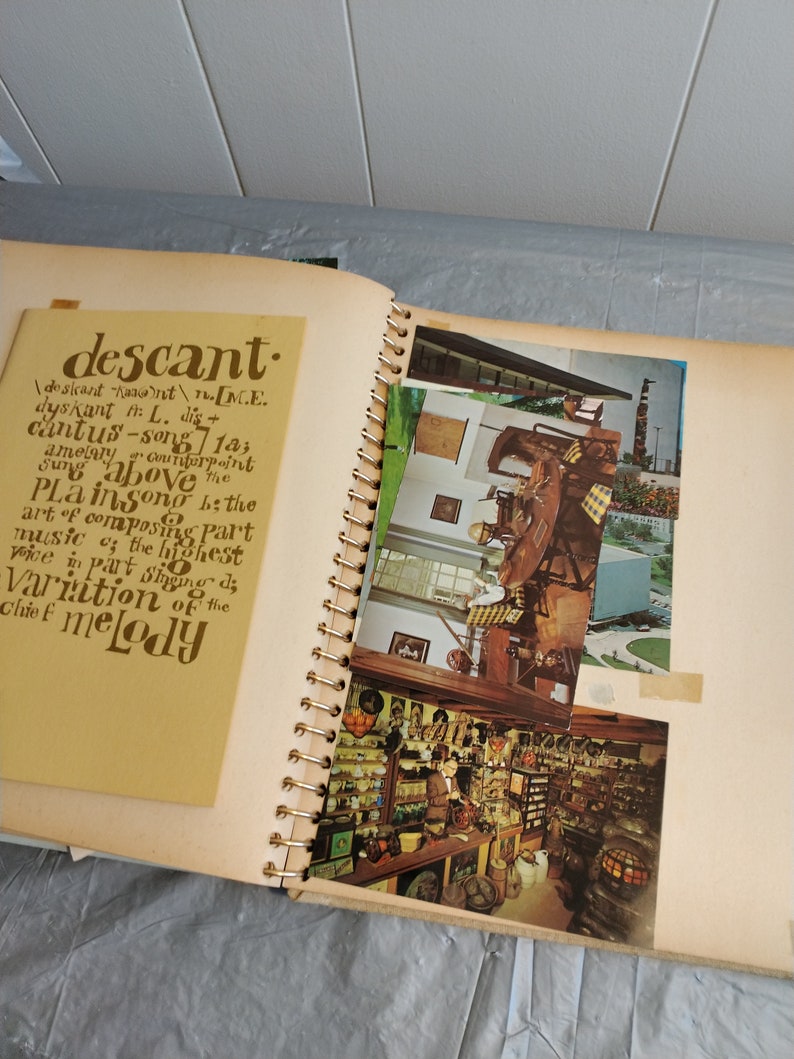 descant.
\deskant -kan(ə)nt\ n.[M.E.
dyskant fr. L. dis +
cantus - song] 1a;
a melody or counterpoint
sung above the
PLainsong b; the
art of composing part
music c; the highest
voice in part singing d;
a variation of the
chief meLody